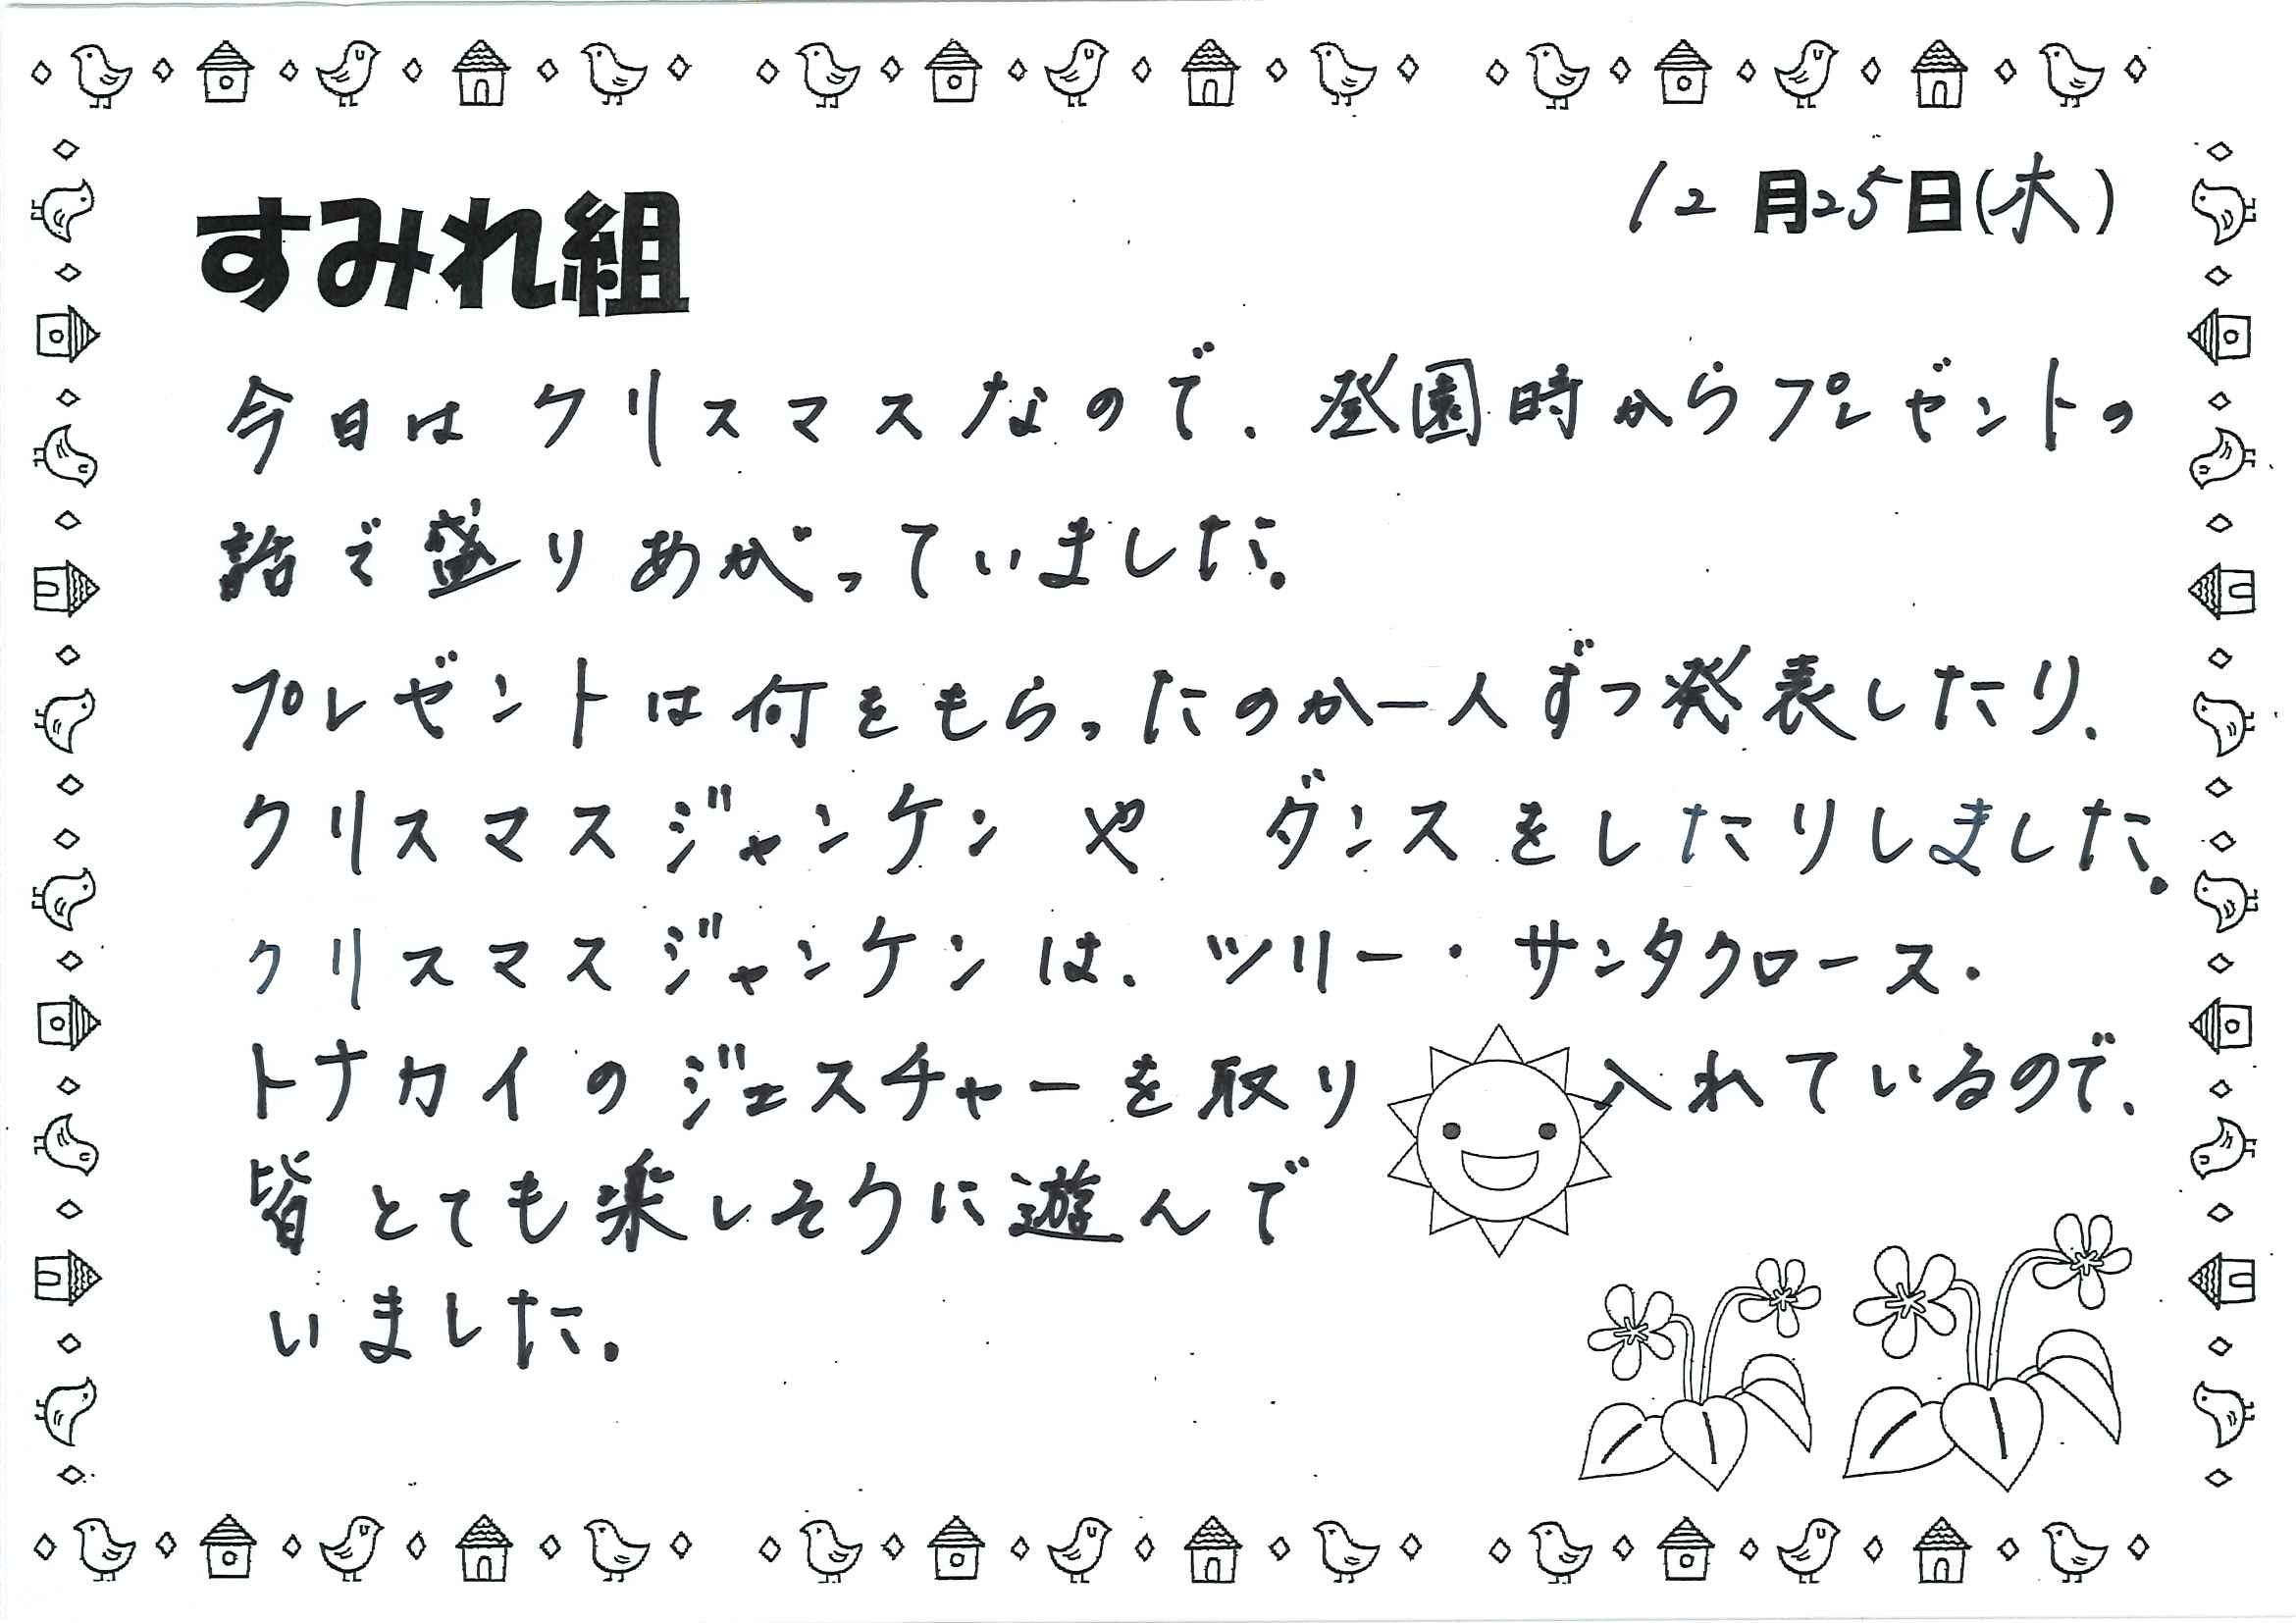 12月25日(木)
すみれ組
今日はクリスマスなので、登園時からプレゼントの
話で盛りあがっていました。
プレゼントは何をもらったのか一人ずつ発表したり、
クリスマスジャンケンや ダンスをしたりしました。
クリスマスジャンケンは、ツリー・サンタクロース・
トナカイのジェスチャーを取り入れているので、
皆とても楽しそうに遊んで
いました。